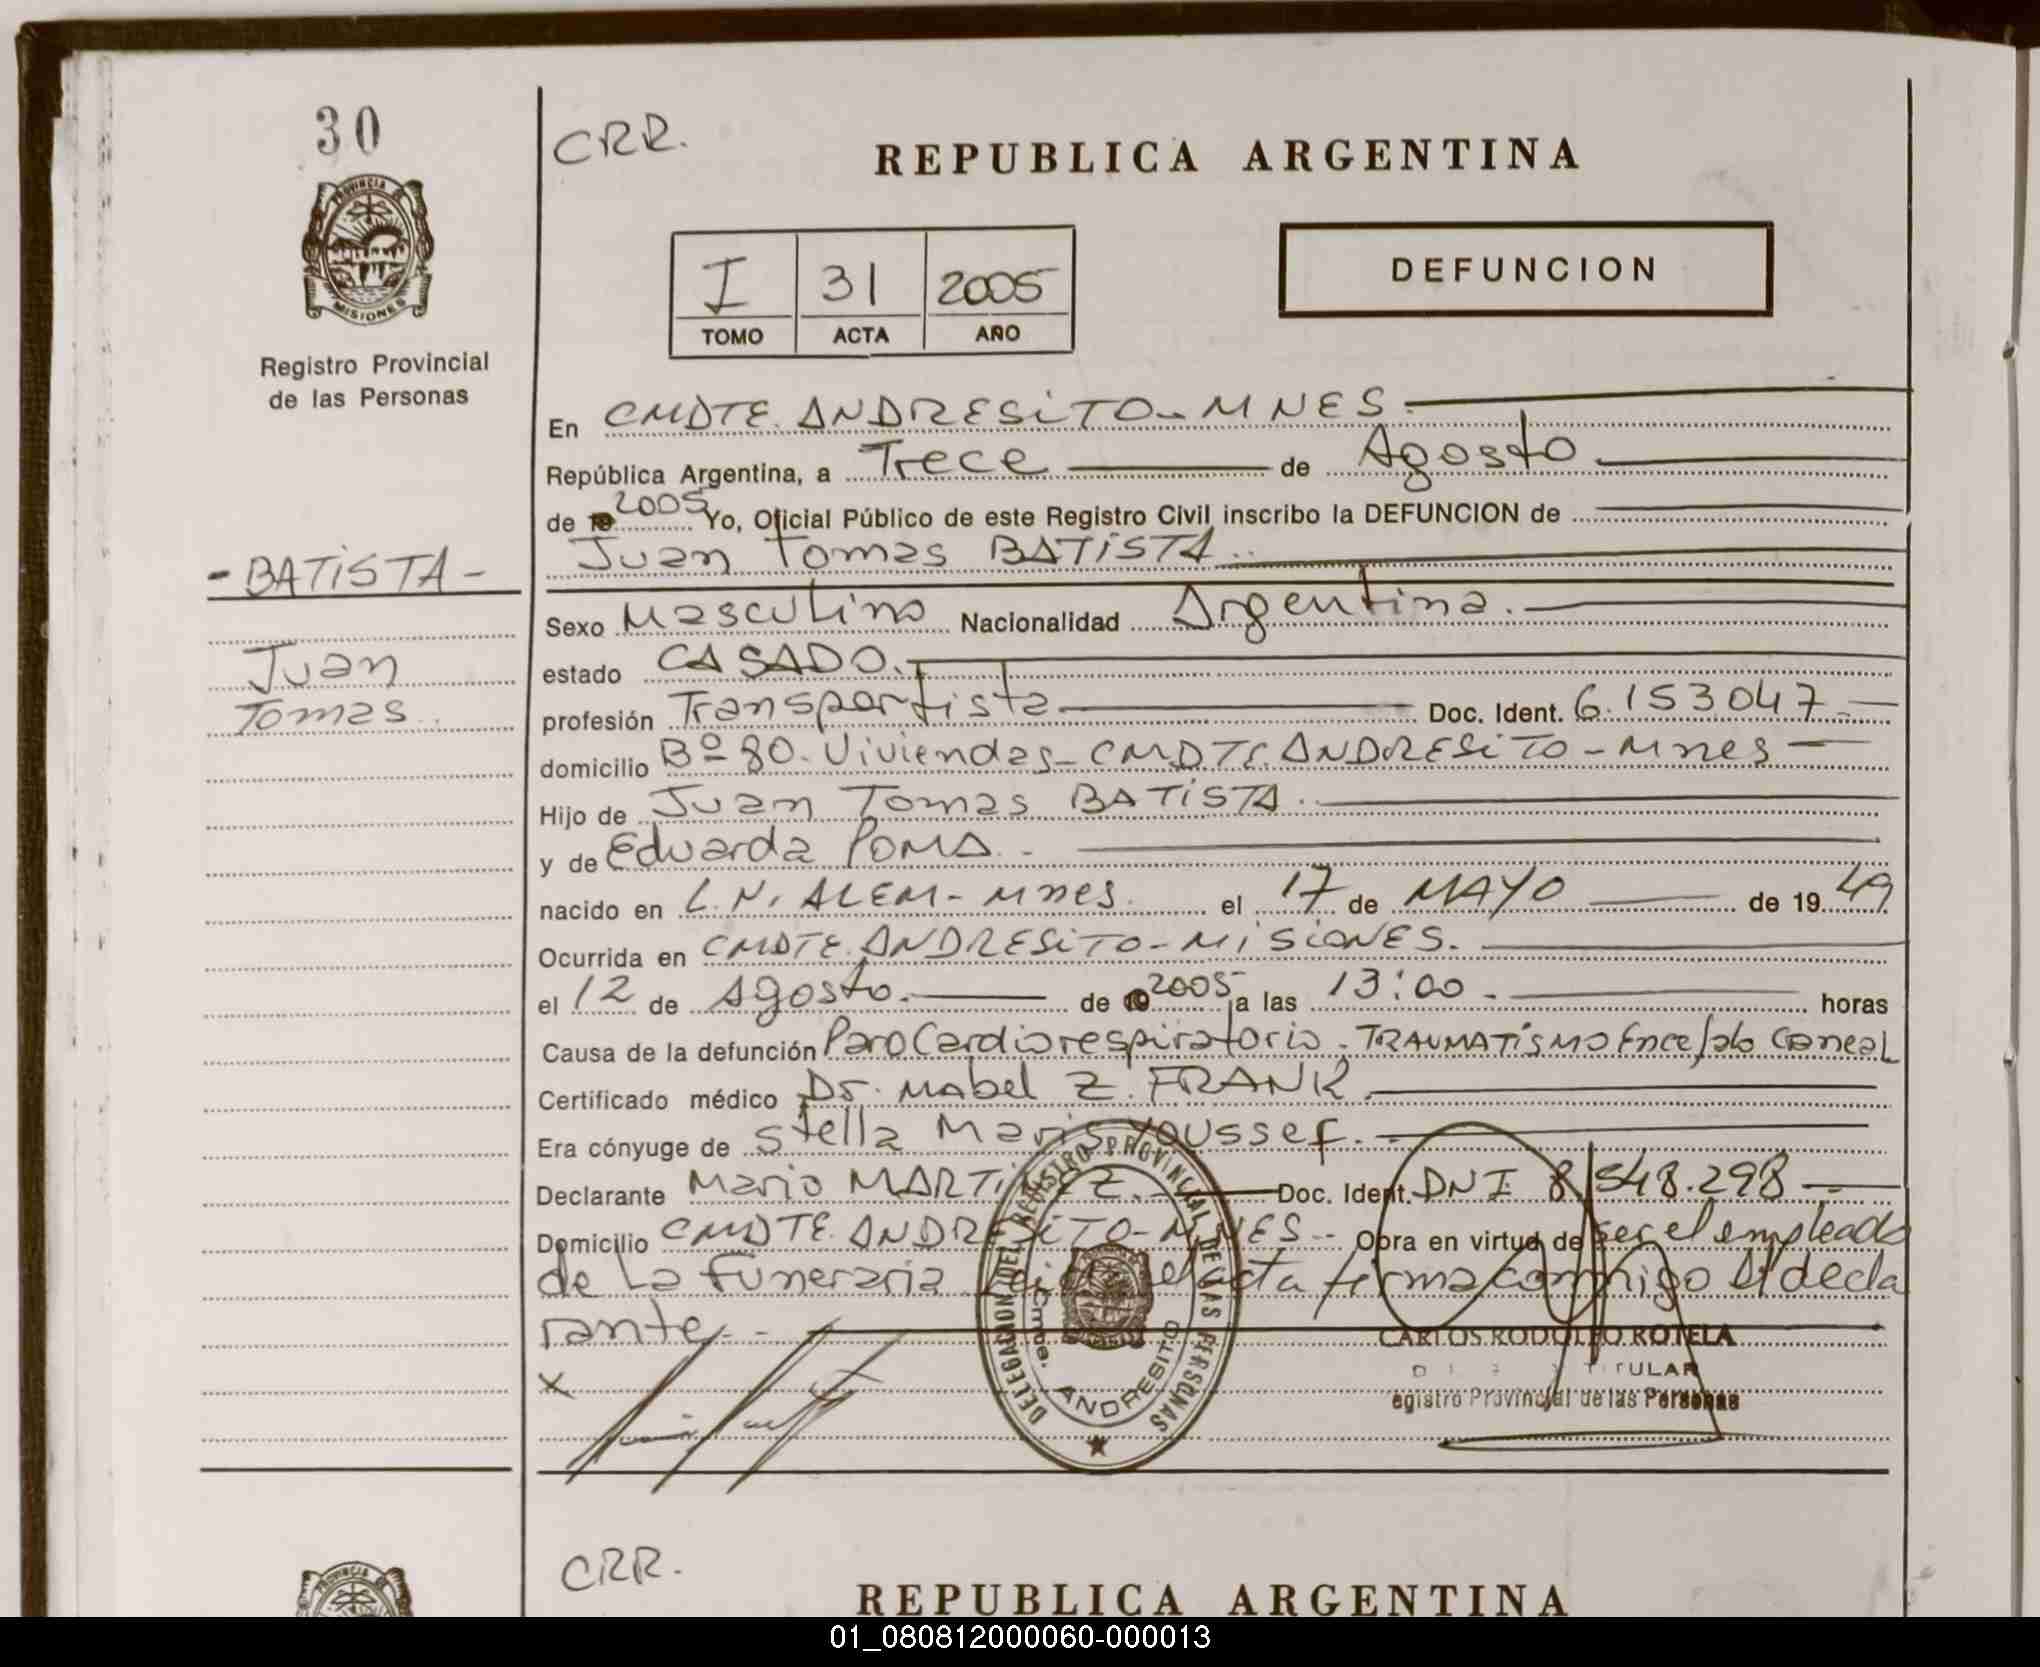 30
CRR.
REPUBLICA ARGENTINA
PROVINCIA DE
MISIONES
Registro Provincial
de las Personas
I 31 2005
TOMO ACTA AÑO
DEFUNCION
En CMDTE. ANDRESiTO - MNES.
República Argentina, a Trece de Agosto
de 19 2005 Yo, Oficial Público de este Registro Civil inscribo la DEFUNCION de
- BATiSTA -
Juan Tomas BATiSTA.
Sexo Masculino Nacionalidad Argentina.
Juan
estado CASADO.
Tomas.
profesión Transportista Doc. Ident. 6.153.047.
domicilio Bº 80. Viviendas - CMDTE. ANDRESiTO - Mnes
Hijo de Juan Tomas BATiSTA.
y de Eduarda POMA.
nacido en L.N. ALEM - Mnes. el 17 de MAYO de 19 49
Ocurrida en CMDTE. ANDRESiTO - MiSiONES.
el 12 de Agosto. de 19 2005 a las 13:00. horas
Causa de la defunción Paro Cardiorespiratorio. TRAUMATiSMO Encefalo Craneal
Certificado médico Dr. Mabel Z. FRANK
Era cónyuge de Stella Maris Youssef.
Declarante Mario MARTiNEZ. Doc. Ident. DNI 8.548.298
Domicilio CMDTE. ANDRESiTO - MNES. Obra en virtud de ser el empleado
de La Funeraria. el acta firma conmigo el decla
rante.
X
DELEGACION DEL REGISTRO PROVINCIAL DE LAS PERSONAS
Cmdte. ANDRESITO
CARLOS RODOLFO ROTELA
TITULAR
egistro Provincial de las Personas
CRR.
PROVINCIA
REPUBLICA ARGENTINA
01_080812000060-000013